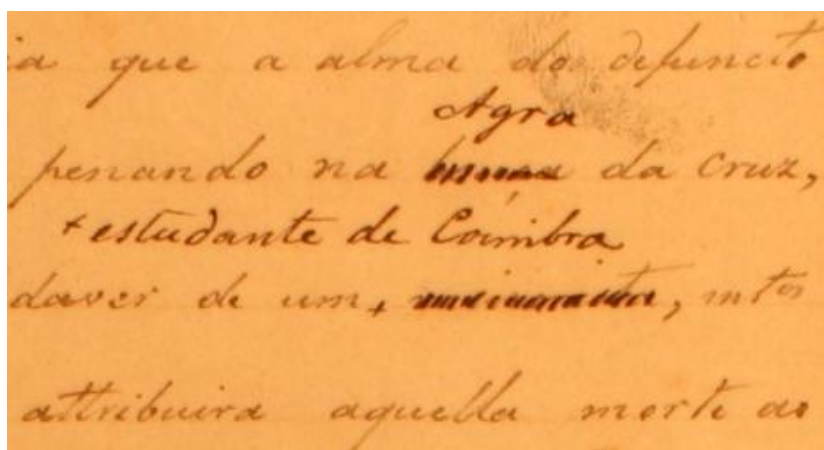 ia que a alma do defuncto
Agra
penando na da cruz,
+ estudante de Coimbra
daver de um +, mtos
attribuira aquella morte ao